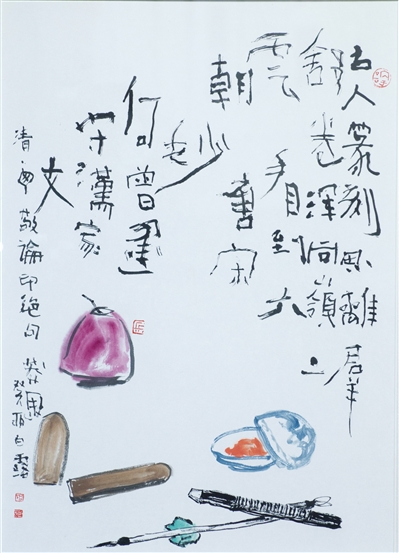 古人篆刻思離羣
舒卷渾同嶺上
雲看到六
朝唐宋
妙
何曾墨
守漢家
文
清丁敬論印絕句
癸卯白露